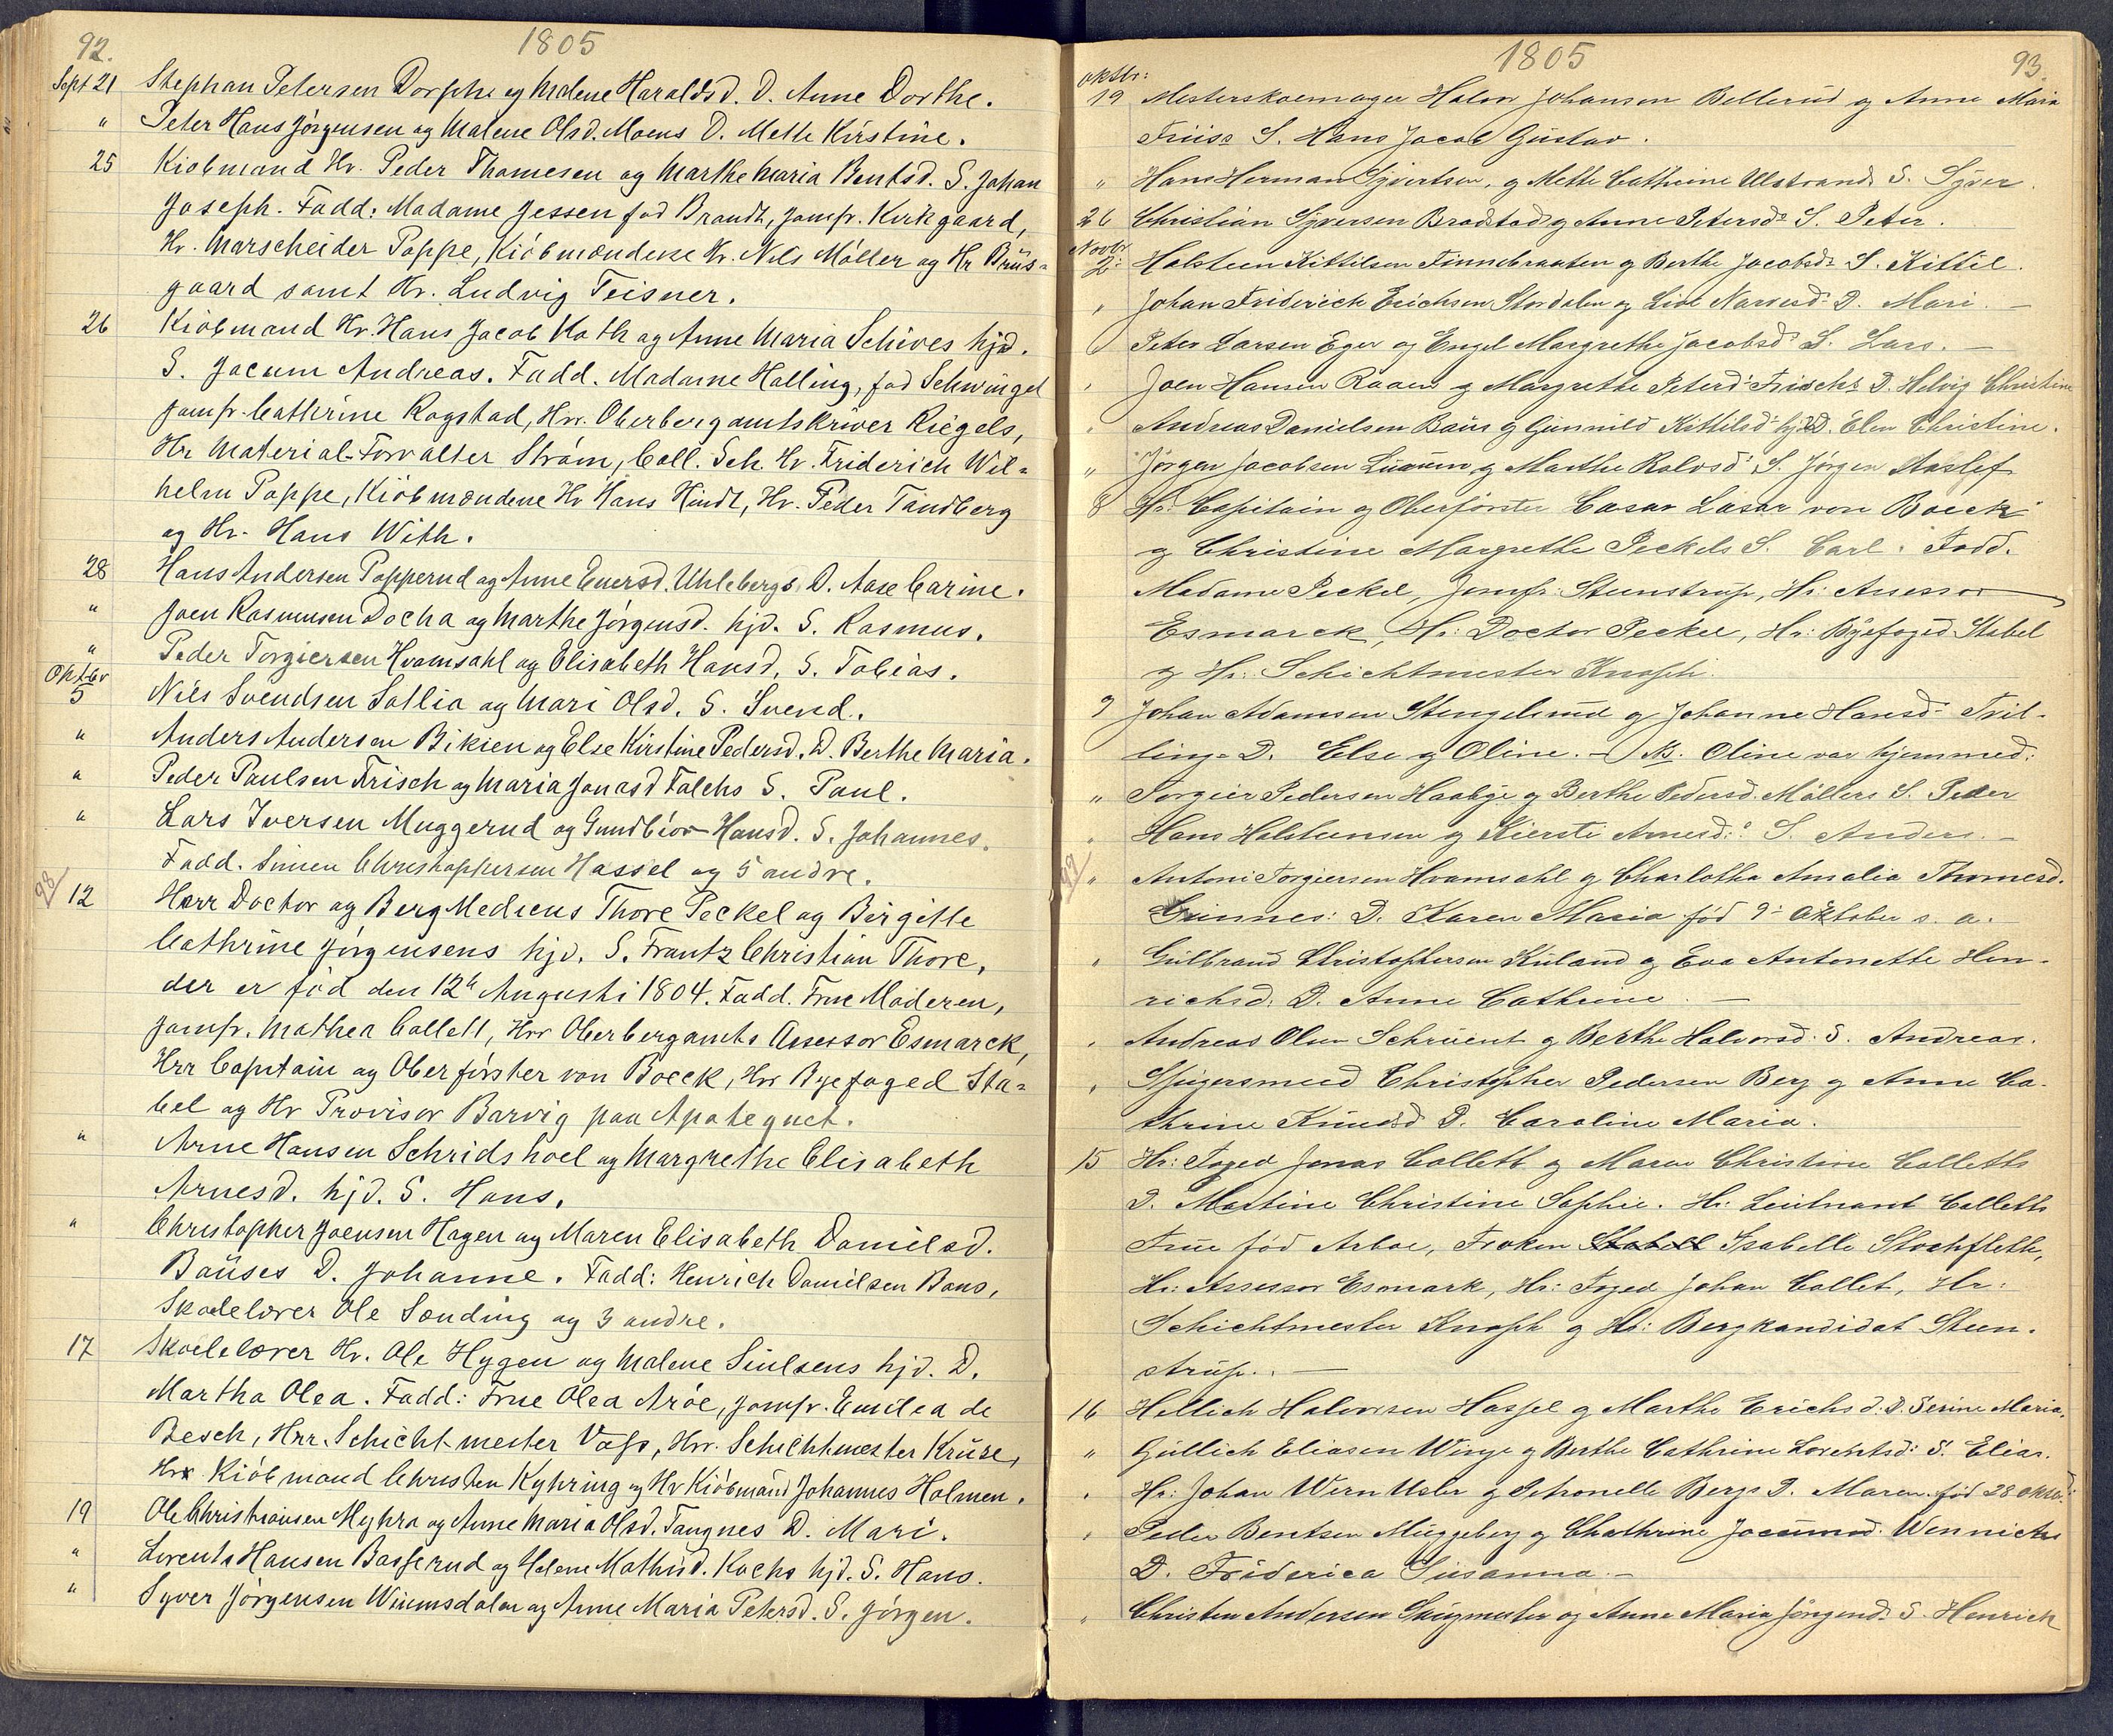 92.
1805
Sept 21 Stephan Petersen Dorphe og Malene Haraldsd. D. Anne Dorthe.
" Peter Hans Jörgensen og Malene Olsd. Moens D. Mette Kirstine.
25 Kiöbmand Hr. Peder Thomesen og Marthe Maria Bentsd. S. Johan
Joseph. Fadd: Madame Jessen fød Brandt, Jomfr. Kirkgaard,
Hr. Marscheider Poppe, Kiöbmændene Hr. Nils Möller og Hr Brüs=
gaard samt Hr. Ludvig Teisner.
26 Kiöbmand Hr. Hans Jacob Koth og Anne Maria Schives hjd.
S. Jacum Andreas. Fadd. Madame Halling, fød Schwingel
Jomfr. Cathrine Rogstad, Hrr. Oberbergamtskriver Riegels,
Hr Material-Forvalter Ström, Coll. Sek. Hr. Friderich Wil=
helm Poppe, Kiöbmændene Hr Hans Hindt, Hr. Peder Tandberg
og Hr. Hans With.
28 Hans Andersen Popperud og Anne Enersd. Uhlebergs D. Aase Carine.
" Joen Rasmusen Docha og Marthe Jörgensd. hjd. S. Rasmus.
" Peder Torgiersen Hvamsahl og Elisabeth Hansd. S. Tobias.
Oktbr
5 Nils Svendsen Sollia og Mari Olsd. S. Svend.
" Anders Andersen Bikien og Else Kirstine Pedersd. D. Berthe Maria.
" Peder Paulsen Frisch og Maria Jonasd Falchs S. Paul.
" Lars Iversen Muggerud og Gundbiør Hansd. S. Johannes.
Fadd. Simen Christophersen Hassel og 5 andre.
98/ 12 Herr Doctor og Berg Medicus Thore Peckel og Birgitte
Cathrine Jörgensens hjd. S. Frantz Christian Thore,
der er född den 12te Augusti 1804. Fadd. Frue Moderen,
Jomfr. Mathea Collett, Hrr Oberbergamts Assessor Esmarck,
Hrr Capitain og Oberförster von Boeck, Hrr Byefoged Sta=
bel og Hr Provisor Barvig paa Apotequet.
" Arne Hansen Schridshoel og Margrethe Elisabeth
Arnesd. hjd. S. Hans.
" Christopher Joensen Hagen og Maren Elisabeth Danielsd.
Baüses D. Johanne. Fadd: Henrich Danielsen Baus,
Skoelelærer Ole Sending og 3 andre.
17 Skoelelærer Hr. Ole Hygen og Malene Siulsens hjd. D.
Martha Olea. Fadd: Frue Olea Aröe, Jomfr. Emilea de
Besch, Hrr. Schichtmester Voss, Hrr. Schichtmester Kruse,
Hr Kiöbmand Christen Kyhring og Hr Kiöbmand Johannes Holmen.
19 Ole Christiansen Myhra og Anne Maria Olsd. Tangnes D. Mari.
" Lorents Hansen Basserud og Helene Mathisd. Kochs hjd. S. Hans.
" Syver Jörgensen Winumsdalen og Anne Maria Petersd. S. Jörgen.
1805
93.
Oktbr:
19 Mesterskoemager Halvor Johansen Bellerud og Anne Maria
Friiss S. Hans Jacob Gustav.
" Hans Herman Syvertsen, og Mette Cathrine Ulstrands S. Syver.
26 Christian Syversen Bradstad og Anne Petersd: S. Peter.
Novbr
2: Halsteen Kittilsen Finnebraaten og Berthe Jacobsd: S. Kittil.
" Johan Friderich Erichsen Stordalen og Live Narvesd: D. Mari. —
Peter Larsen Eger og Engel Margrethe Jacobsd: S. Lars. —
" Joen Hansen Raaen og Margrethe Petersd: Frischs D. Helvig Christine
" Andreas Danielsen Baus og Gunnild Kittilsd: hjd. D. Elen Christine.
" Jörgen Jacobsen og Marthe Rolvsd: S. Jörgen Aaslef
8 Hr: Capitain og Oberförster Cæsar Læsar von Boeck
og Christine Margrethe Peckels S. Carl. Fadd.
Madame Peckel, Jomfr: Steenstrup, Hr: Assessor
Esmarck, Hr: Doctor Peckel, Hr: Byefoged Stabel
og Hr: Schichtmester Knoph.
9 Johan Adamsen Stengelsrud og Johanne Hansd: Tvil-
ling-D. Else og Oline. — Nb. Oline var hjemmed:
" Torgier Pedersen Haabye og Berthe Pedersd. Möllers S. Peder
" Hans Halsteensen og Kiersti Arnesd: S. Anders. —
99/ " Antoni Torgiersen Hvamsahl og Charlotha Amalia Thomesd.
Grinnes: D. Karen Maria född 9: Oktober s. a.
" Gulbrand Christophersen Ruland og Eva Antonette Hen-
richsd: D. Anne Cathrine. —
" Andreas Olsen Schruent og Berthe Halvorsd: S. Andreas.
" Spigersmed Christopher Pedersen Berg og Anne Ca-
thrine Knudsd D. Caroline Maria.
15 Hr: Foged Jonas Collett og Maren Christine Colletts
D. Martine Christine Sophie. Hr: Leutnant Colletts
Frue född Arboe, Frøken Isabelle Stochfleth,
Hr: Assessor Esmark, Hr: Foged Johan Collet, Hr:
Schichtmester Knoph og Hr: Bergkandidat Steen-
strup. —
16 Hellich Halvorsen Hassel og Marthe Erichsd: D. Serine Maria.
" Gullich Eliasen Winge og Berthe Cathrine Lorentsd: S. Elias.
" Hr: Johan Wern og Petronelle Bergs D. Maren. född 28 Oktbr:
" Peder Bentsen Muggeberg og Chathrine Jacumsd. Wennichs
D. Friderica Susanna. —
" Christen Andersen og Anne Maria Jörgensd: S. Henrich